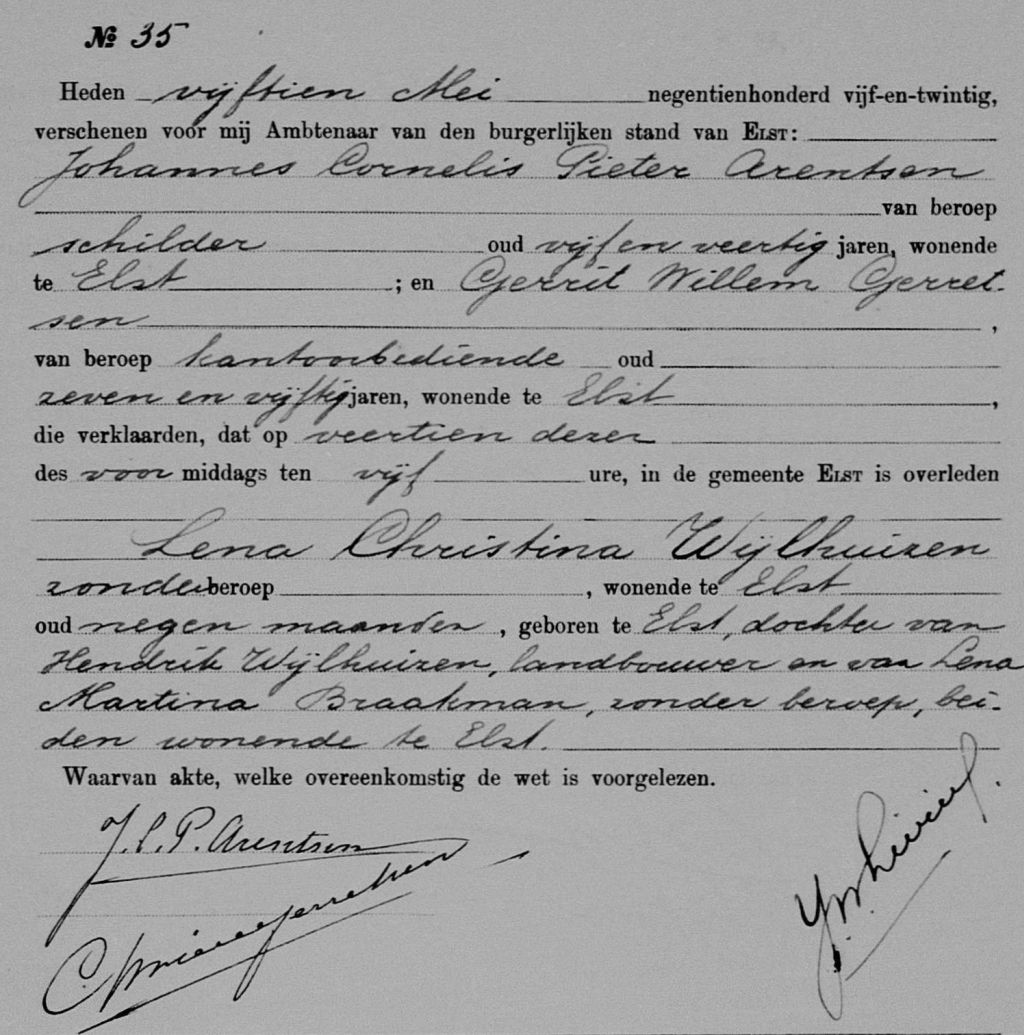 № 35
Heden vijftien Mei negentienhonderd vijf-en-twintig,
verschenen voor mij Ambtenaar van den burgerlijken stand van ELST:
Johannes Cornelis Pieter Arentsen
van beroep
schilder oud vijf en veertig jaren, wonende
te Elst ; en Gerrit Willem Gerret-
sen ,
van beroep kantoorbediende oud
zeven en vijftig jaren, wonende te Elst ,
die verklaarden, dat op veertien dezer
des voor middags ten vijf ure, in de gemeente ELST is overleden
Lena Christina Wijlhuizen
zonder beroep , wonende te Elst
oud negen maanden , geboren te Elst, dochter van
Hendrik Wijlhuizen, landbouwer en van Lena
Martina Braakman, zonder beroep, bei-
den wonende te Elst.
Waarvan akte, welke overeenkomstig de wet is voorgelezen.
J.C.P. Arentsen